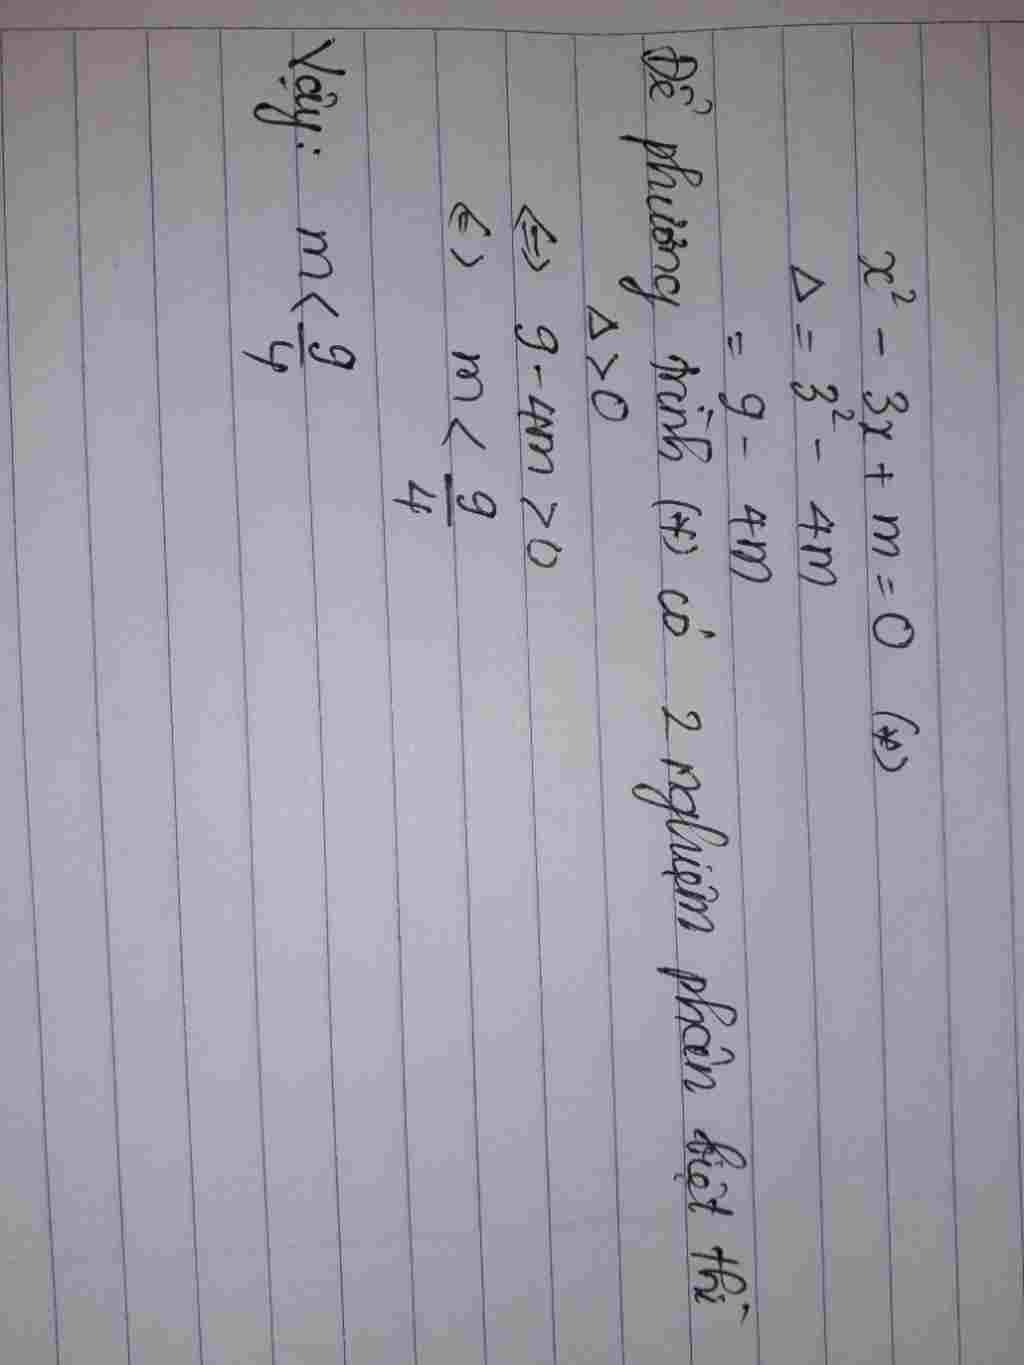 x² - 3x + m = 0 (*)
Δ = 3² - 4m
= 9 - 4m
Để phương trình (*) có 2 nghiệm phân biệt thì
Δ > 0
<=> 9 - 4m > 0
<=> m < 9/4
Vậy: m < 9/4